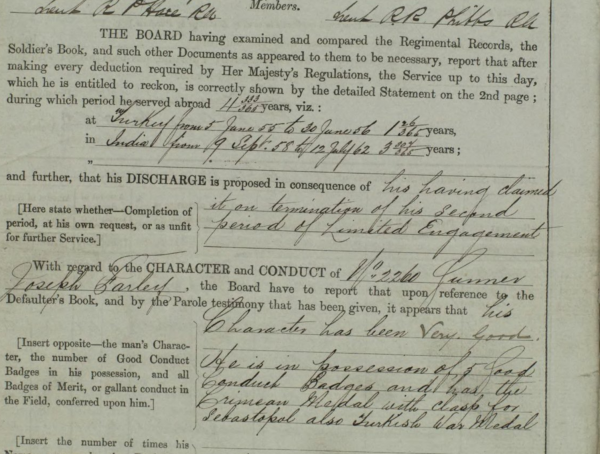 Lieut R P Hare RA Members. Lieut R R Phibbs RA
THE BOARD having examined and compared the Regimental Records, the
Soldier's Book, and such other Documents as appeared to them to be necessary, report that after
making every deduction required by Her Majesty's Regulations, the Service up to this day,
which he is entitled to reckon, is correctly shown by the detailed Statement on the 2nd page;
during which period he served abroad 4 333/365 years, viz.:
at Turkey from 5 June 55 to 30 June 56 1 26/365 years,
in India from 9 Sept. 58 to 12 July 62 3 307/365 years;
"
and further, that his DISCHARGE is proposed in consequence of his having claimed
[Here state whether—Completion of it on termination of his second
period, at his own request, or as unfit period of Limited Engagement
for further Service.]
With regard to the CHARACTER and CONDUCT of No 2260 Gunner
Joseph Farley, the Board have to report that upon reference to the
Defaulter's Book, and by the Parole testimony that has been given, it appears that his
Character has been Very Good.
[Insert opposite—the man's Charac-
ter, the number of Good Conduct He is in possession of 5 Good
Badges in his possession, and all Conduct Badges and has the
Badges of Merit, or gallant conduct in Crimean Medal with clasp for
the Field, conferred upon him.] Sebastopol also Turkish War Medal
[Insert the number of times his